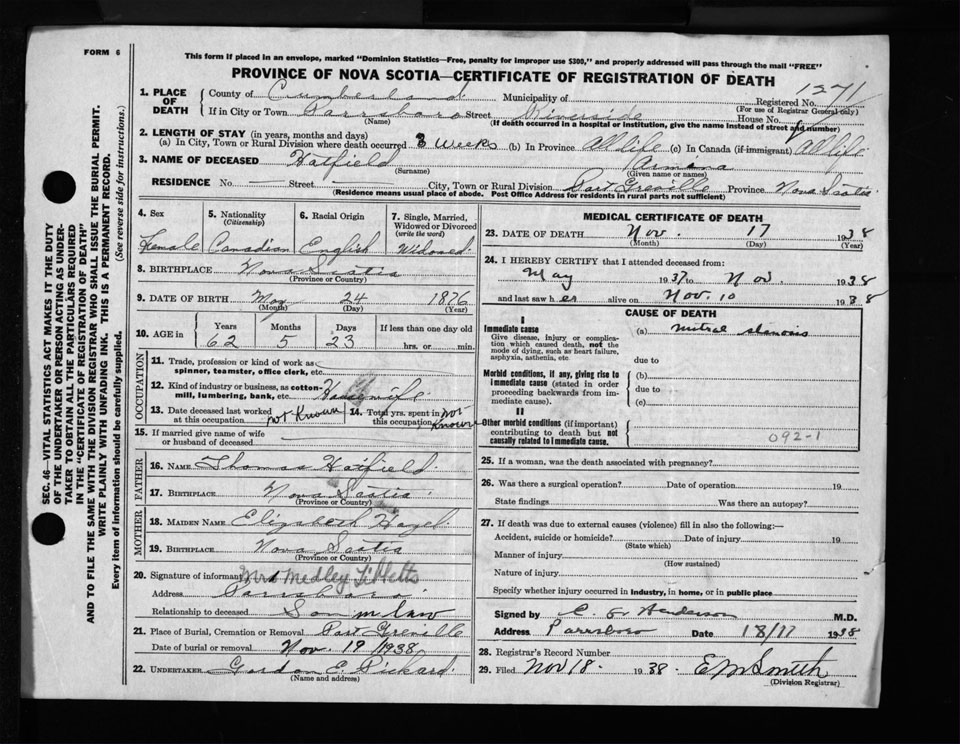 FORM 6
This form if placed in an envelope, marked "Dominion Statistics—Free, penalty for improper use $300," and properly addressed will pass through the mail "FREE"
PROVINCE OF NOVA SCOTIA—CERTIFICATE OF REGISTRATION OF DEATH
1271
1. PLACE OF DEATH County of Cumberland Municipality of Registered No.
(For use of Registrar General only)
If in City or Town Parrsboro Street Riverside House No.
(Name) (If death occurred in a hospital or institution, give the name instead of street and number)
2. LENGTH OF STAY (in years, months and days)
(a) In City, Town or Rural Division where death occurred 3 Weeks (b) In Province All life (c) In Canada (if immigrant) All life
3. NAME OF DECEASED Hatfield Armina
(Surname) (Given name or names)
RESIDENCE No. Street City, Town or Rural Division Port Greville Province Nova Scotia
(Residence means usual place of abode. Post Office Address for residents in rural parts not sufficient)
SEC. 46—VITAL STATISTICS ACT MAKES IT THE DUTY
OF THE UNDERTAKER OR PERSON ACTING AS UNDER-
TAKER TO OBTAIN ALL THE PARTICULARS REQUIRED
IN THE "CERTIFICATE OF REGISTRATION OF DEATH"
AND TO FILE THE SAME WITH THE DIVISION REGISTRAR WHO SHALL ISSUE THE BURIAL PERMIT.
WRITE PLAINLY WITH UNFADING INK. THIS IS A PERMANENT RECORD.
Every item of information should be carefully supplied. (See reverse side for instructions.)
4. Sex 5. Nationality 6. Racial Origin 7. Single, Married,
(Citizenship) Widowed or Divorced
(write the word)
Female Canadian English Widowed
8. BIRTHPLACE Nova Scotia
(Province or Country)
9. DATE OF BIRTH May 24 1876
(Month) (Day) (Year)
10. AGE in Years Months Days If less than one day old
62 5 23 hrs. or min.
OCCUPATION
11. Trade, profession or kind of work as
spinner, teamster, office clerk, etc.
12. Kind of industry or business, as cotton-
mill, lumbering, bank, etc. Housewife
13. Date deceased last worked at this occupation not Known
14. Total yrs. spent in this occupation not Known
15. If married give name of wife
or husband of deceased
FATHER
16. NAME Thomas Hatfield
17. BIRTHPLACE Nova Scotia
(Province or Country)
MOTHER
18. MAIDEN NAME Elizabeth Hazel
19. BIRTHPLACE Nova Scotia
(Province or Country)
20. Signature of informant Mrs Medley Tibbetts
Address Parrsboro
Relationship to deceased Son in law
21. Place of Burial, Cremation or Removal Port Greville
Date of burial or removal Nov. 19 1938
22. UNDERTAKER Gordon E. Pickard
(Name and address)
MEDICAL CERTIFICATE OF DEATH
23. DATE OF DEATH Nov. 17 1938
(Month) (Day) (Year)
24. I HEREBY CERTIFY that I attended deceased from:
May 1937 to Nov 1938
and last saw her alive on Nov. 10 1938
CAUSE OF DEATH
I
Immediate cause (a) mitral stenosis
Give disease, injury or complica-
tion which caused death, not the
mode of dying, such as heart failure,
asphyxia, asthenia, etc due to
Morbid conditions, if any, giving rise to
immediate cause (stated in order
proceeding backwards from im-
mediate cause). (b)
due to
(c)
II
Other morbid conditions (if important)
contributing to death but not
causally related to immediate cause.
092-1
25. If a woman, was the death associated with pregnancy?
26. Was there a surgical operation? Date of operation 19
State findings Was there an autopsy?
27. If death was due to external causes (violence) fill in also the following:—
Accident, suicide or homicide? Date of injury 19
(State which)
Manner of injury
(How sustained)
Nature of injury
Specify whether injury occurred in industry, in home, or in public place
Signed by Henderson M.D.
Address Parrsboro Date 18/11 1938
28. Registrar's Record Number
29. Filed Nov 18 1938 E M Smith
(Division Registrar)